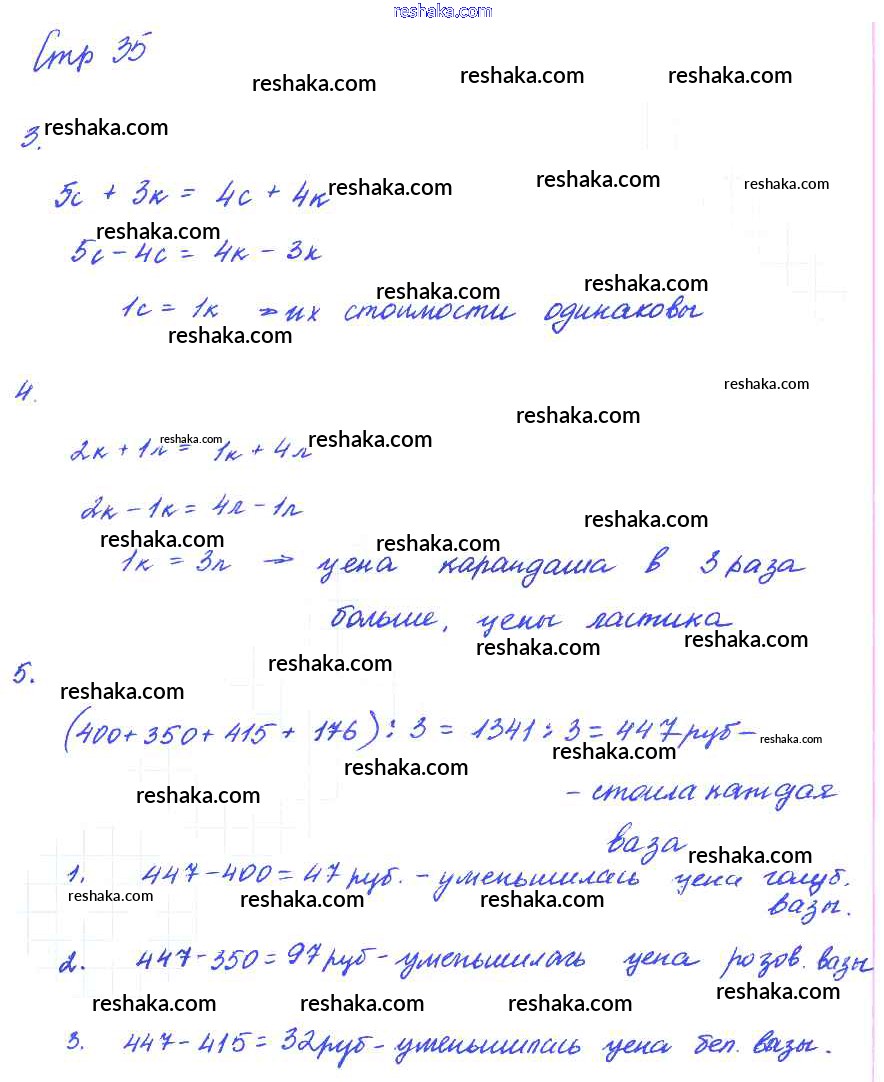 reshaka.com
Стр 35
reshaka.com reshaka.com reshaka.com
reshaka.com
3.
5с + 3к = 4с + 4к reshaka.com reshaka.com reshaka.com
reshaka.com
5с - 4с = 4к - 3к
reshaka.com reshaka.com
1с = 1к → их стоимости одинаковы
reshaka.com
4.
reshaka.com
reshaka.com
2к + 1л = 1к + 4л reshaka.com reshaka.com
2к - 1к = 4л - 1л
reshaka.com
reshaka.com reshaka.com
1к = 3л → цена карандаша в 3 раза
больше, цены ластика
reshaka.com reshaka.com
5.
reshaka.com reshaka.com
(400 + 350 + 415 + 176) : 3 = 1341 : 3 = 447 руб -
reshaka.com reshaka.com
reshaka.com
- стоила каждая
reshaka.com
ваза
reshaka.com
1. 447 - 400 = 47 руб. - уменьшилась цена голуб.
reshaka.com reshaka.com reshaka.com
вазы.
2. 447 - 350 = 97 руб - уменьшилась цена розов. вазы
reshaka.com
reshaka.com reshaka.com reshaka.com
3. 447 - 415 = 32 руб - уменьшилась цена бел. вазы.